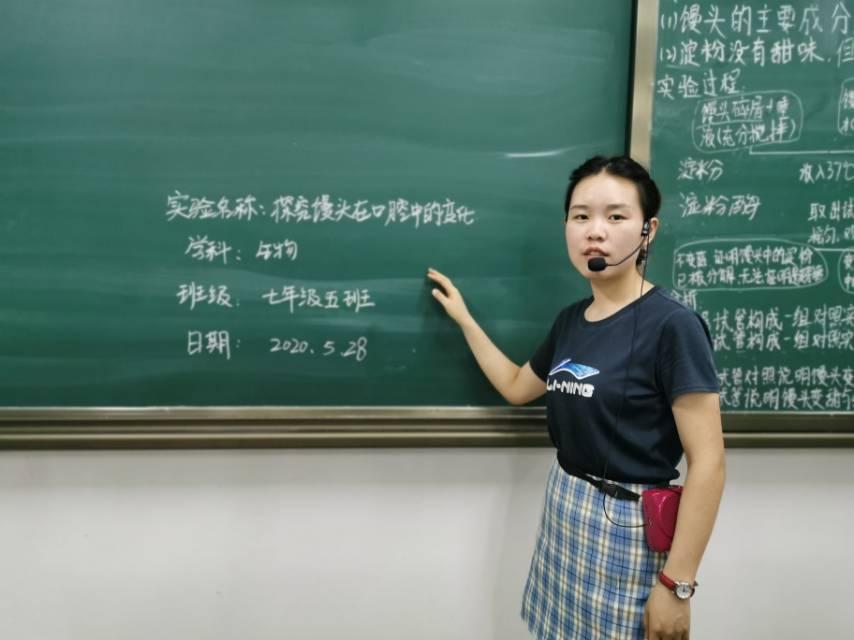 实验名称：探究馒头在口腔中的变化
学科：生物
班级：七年级五班
日期：2020.5.28
LI-NING
(1)馒头的主要成分
(2)淀粉没有甜味，但
实验过程
馒头碎屑+唾
液(充分搅拌)
淀粉 放入37℃
淀粉酶 取出试
不变蓝 证明馒头中的淀粉
已被分解，无法证明
试管构成一组对照实
试管构成一组对照实
试管对照说明馒头变
说明馒头变甜